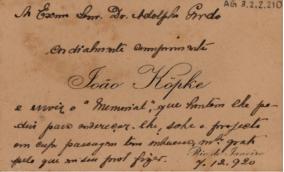 AG 3.2.2.210
A Exmo Snr. Dr. Adolpho Gordo
cordialmente comprimenta
João Köpke
e envia o "Memorial", que hontem lhe pe-
diu para endereçar-lhe, sobre o projecto
em cuja passagem tem m.to grato
pelo que em seu prol fizer.
Rio de Janeiro
7.12.920